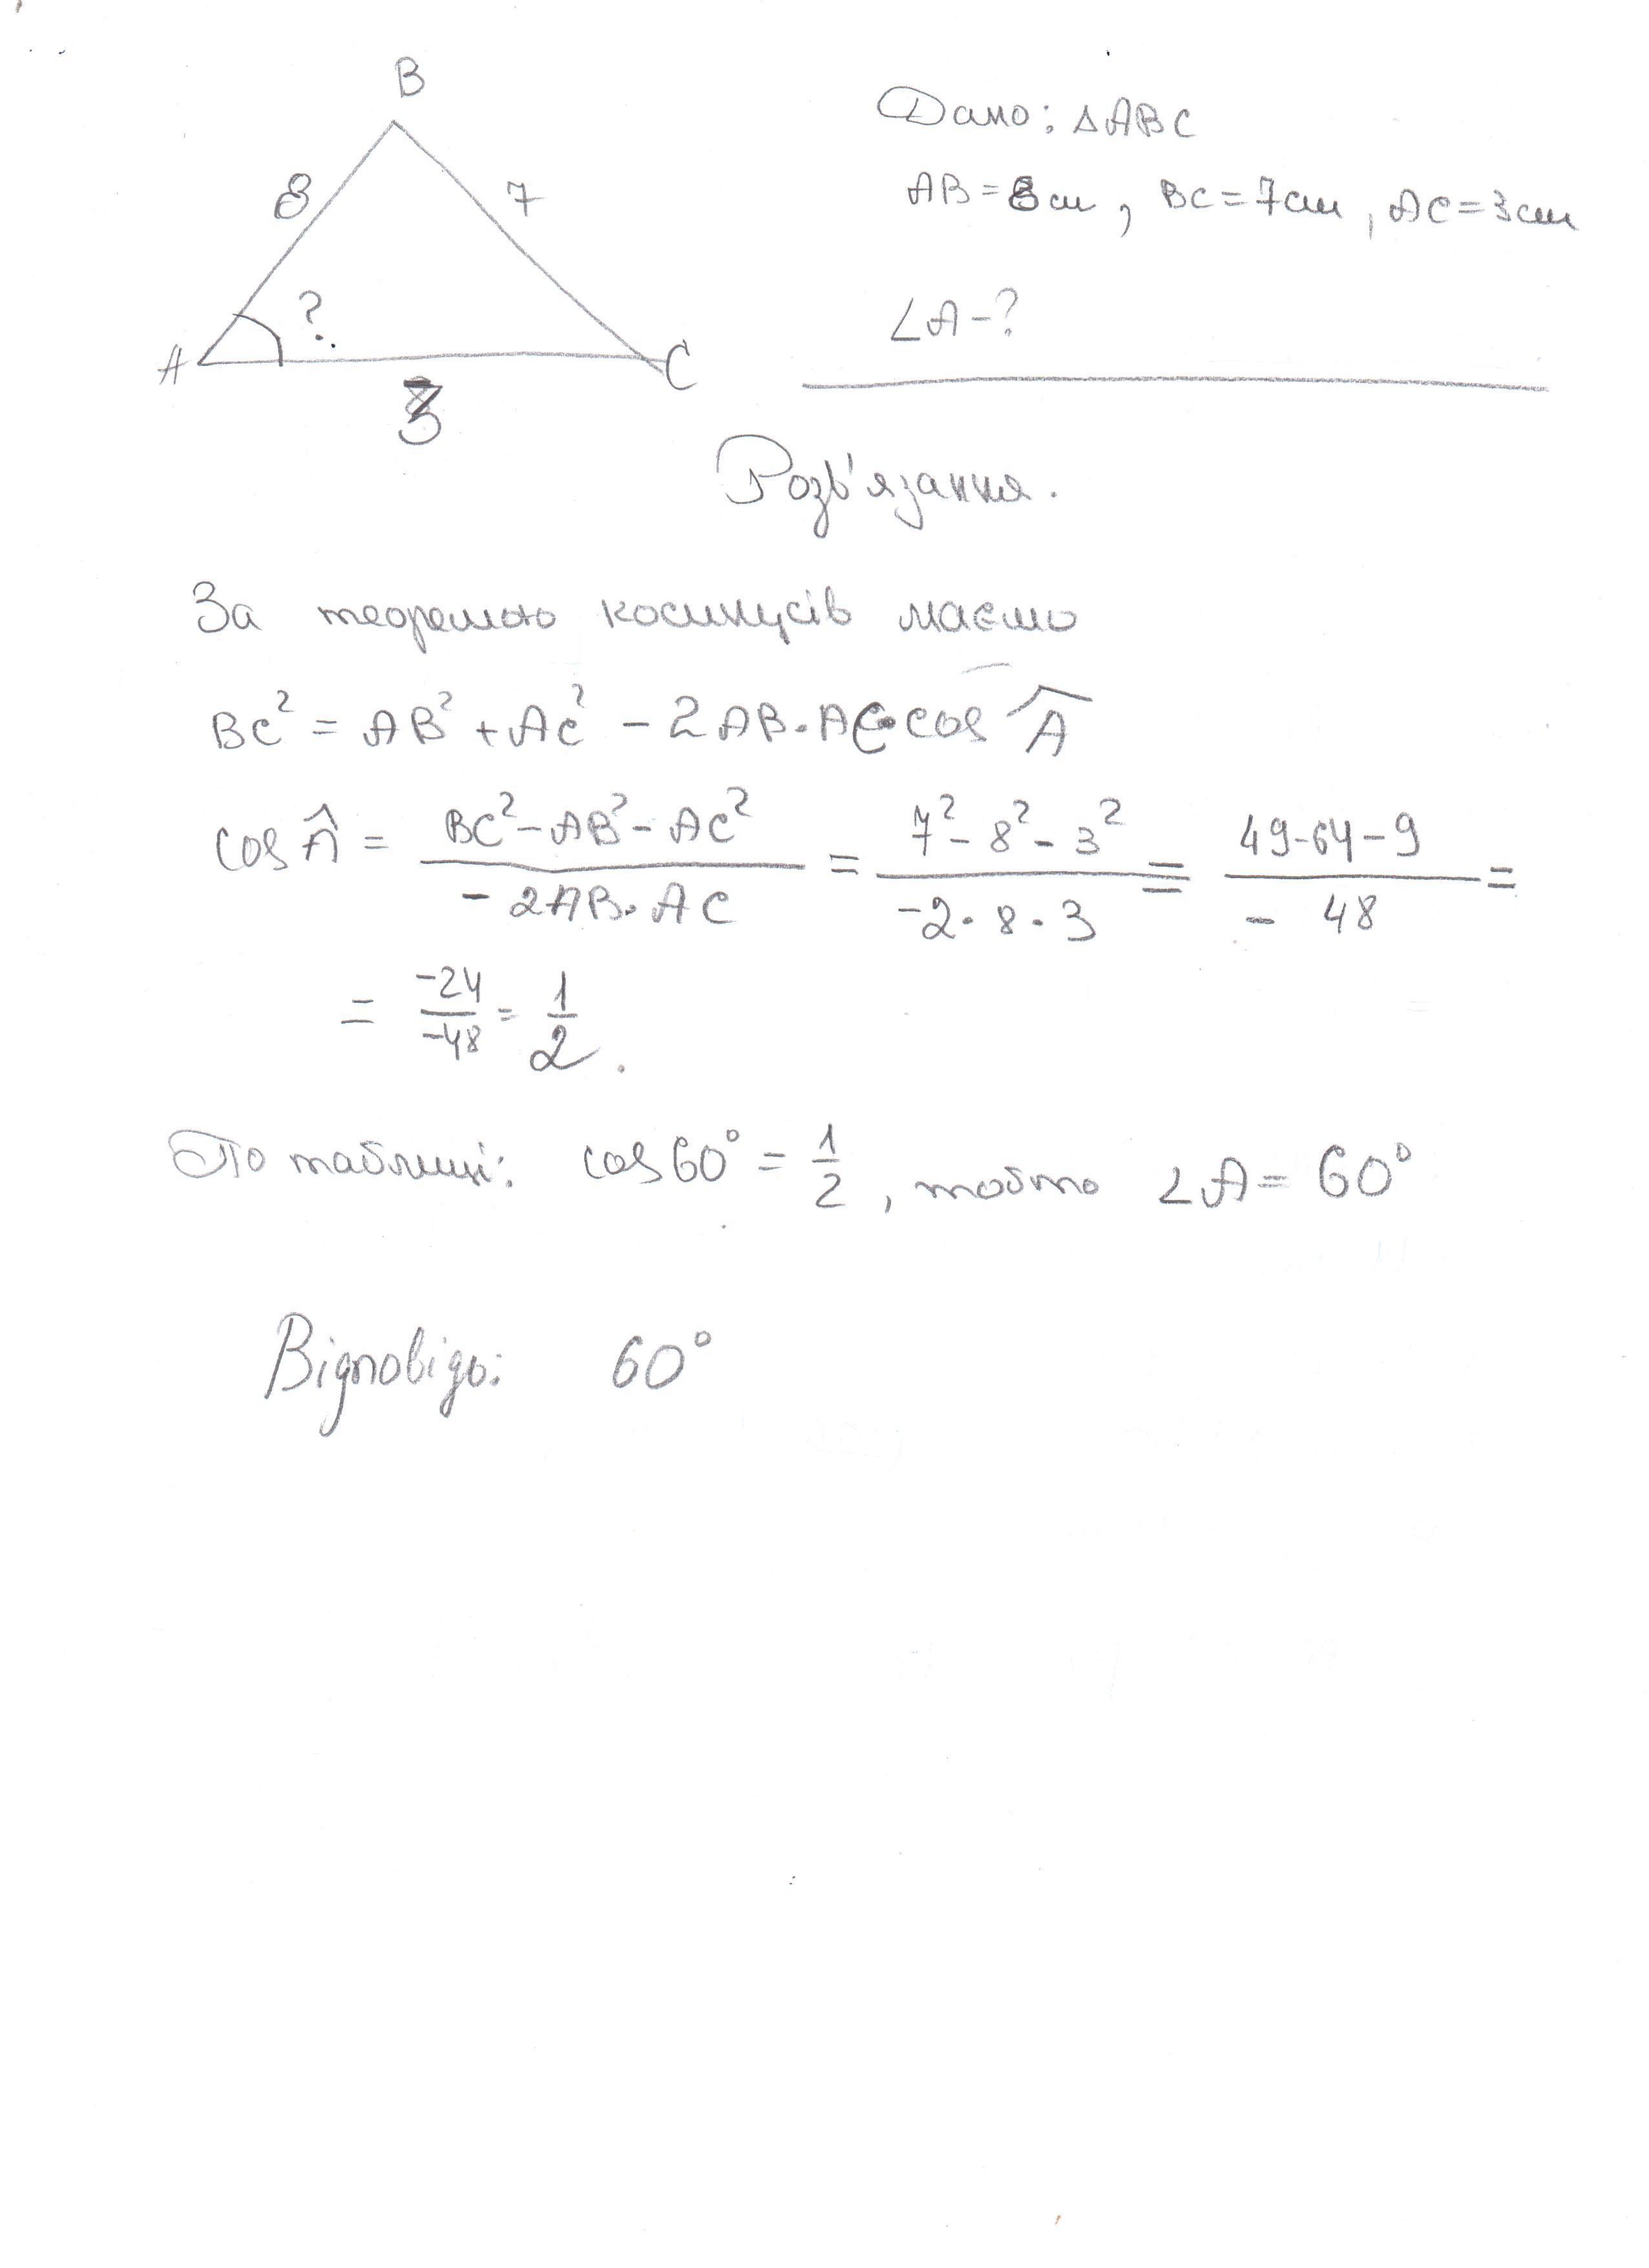 B
8
7
?
A
C
3
Дано: △ABC
AB = 8см, BC = 7см, AC = 3см
∠A - ?
Розв'язання.
За теоремою косинусів маємо
BC² = AB² + AC² - 2AB·AC·cos Â
cos Â = (BC² - AB² - AC²)/(-2AB·AC) = (7² - 8² - 3²)/(-2·8·3) = (49-64-9)/(-48) =
= -24/-48 = 1/2.
По таблиці: cos 60° = 1/2, тобто ∠A = 60°
Відповідь: 60°